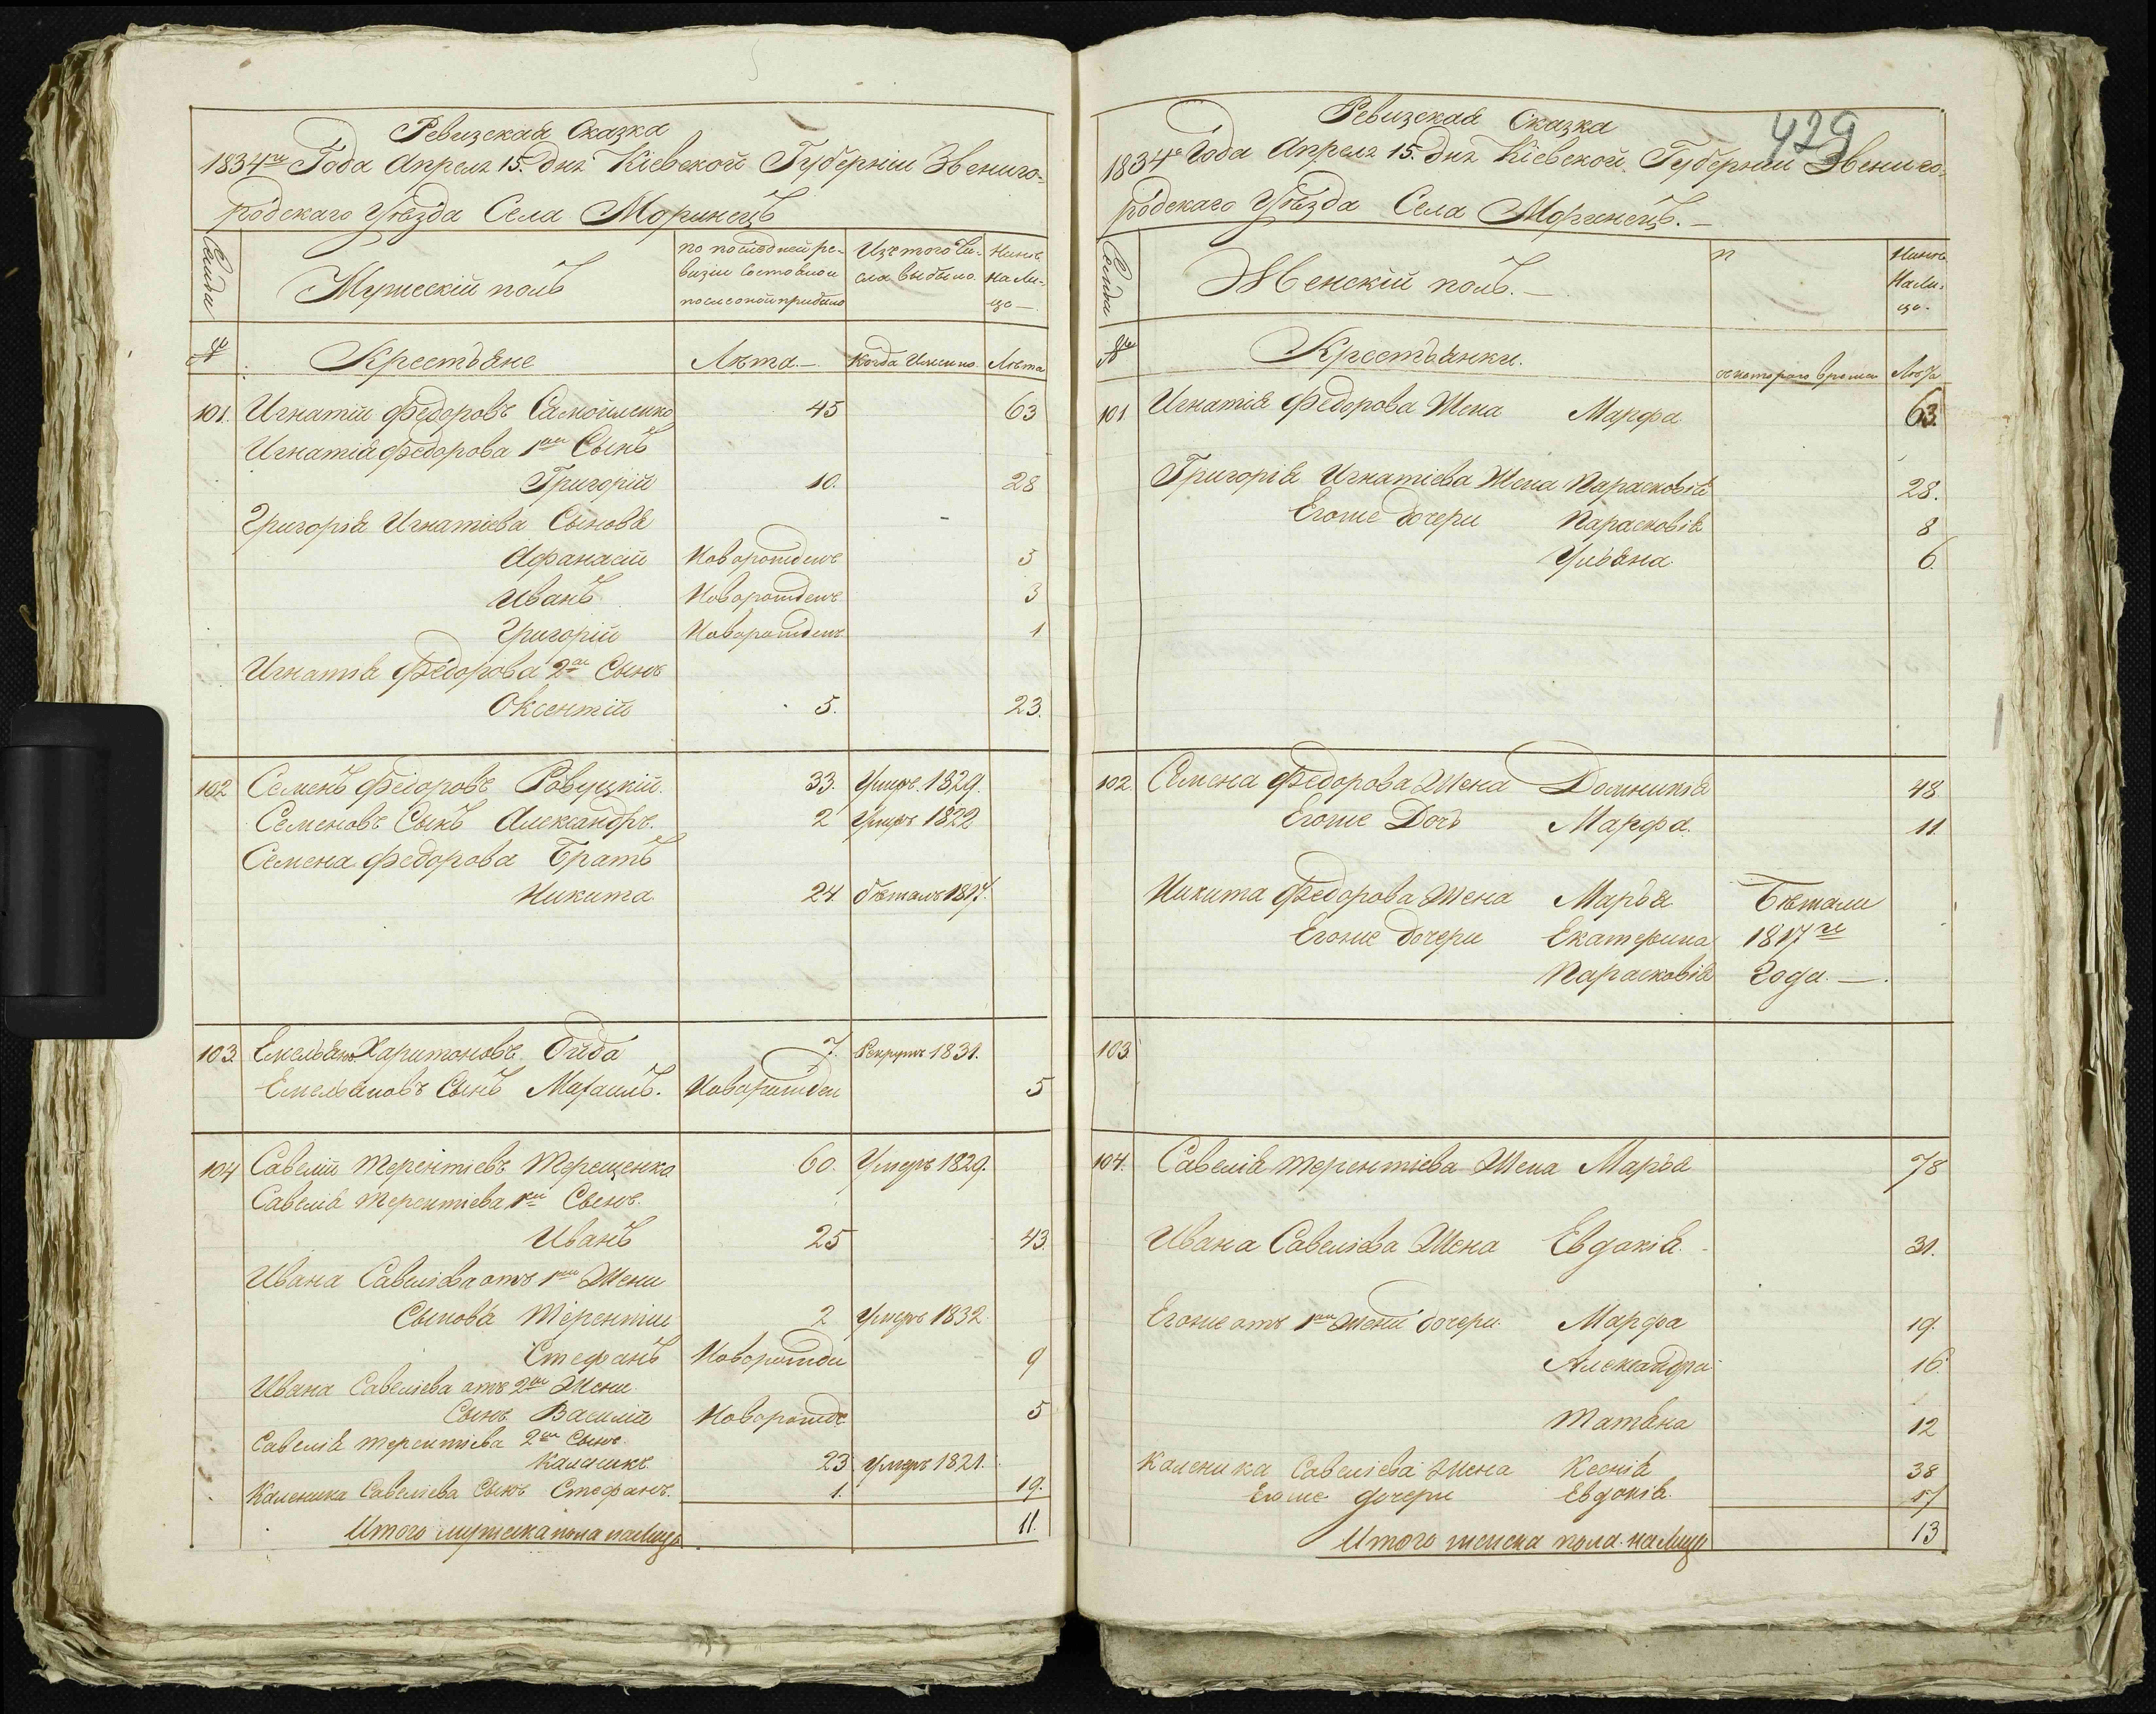 Ревизская Сказка
1834го Года Апреля 15. дня Кіевской Губерніи Звениго-
родскаго Уѣзда Села Моринецъ
Семьи
Мужескій полъ
по последней ре-
визіи состояло и
после оной прибыло
Изъ того чи-
сла выбыло
Нынѣ
на ли-
цо
№
Крестьяне
Лѣта
когда именно
Лѣта
101. Игнатій Федоровъ Самойленко 45 63
Игнатія Федорова 1й Сынъ
Григорій 10. 28
Григорія Игнатіева Сыновья
Афанасій Новорожденъ 5
Иванъ Новорожденъ 3
Григорій Новорожденъ 1
Игнатія Федорова 2й Сынъ
Оксентій 5. 23.
102 Семенъ Федоровъ Ровуцкій 33. Умеръ 1829.
Семеновъ Сынъ Александръ. 2 Умеръ 1822
Семена Федорова Братъ
Никита 24. бѣжалъ 1817.
103. Емельянъ Харитоновъ 7. Рекрутъ 1831.
Емельяновъ Сынъ Михаилъ. Новорожден 5
104 Савелій Терентіевъ Терещенко 60. Умеръ 1829.
Савелія Терентіева 1й Сынъ.
Иванъ 25 43
Ивана Савеліева отъ 1й Жени
Сыновья Терентій 2 Умеръ 1832
Стефанъ Новорожде 9
Ивана Савеліева отъ 2й Жени.
Сынъ Василій Новорожде 5
Савелія Терентіева 2й Сынъ.
Каленикъ 23 умеръ 1821.
Каленика Савеліева Сынъ Стефанъ. 1. 19.
Итого мужеска пола налицо 11.
429
Ревизская Сказка
1834го Года Апреля 15. дня Кіевской Губерніи Звениго-
родскаго Уѣзда Села Моринецъ.
Семьи
Женскій полъ.
Нынѣ
На ли-
цо.
№
Крестьянки.
съ котораго времени
Лѣта
101 Игнатія Федорова Жена Марфа 63.
Григорія Игнатіева Жена Парасковія 28.
Егоже дочери Парасковія 8
Ульяна 6.
102. Семена Федорова Жена Домникія 48.
Егоже Дочь Марфа. 11.
Никита Федорова Жена Марья Бѣжали
Егоже дочери Екатерина 1817го
Парасковія года.
103
104. Савелія Терентіева Жена Марья 78
Ивана Савеліева Жена Евдокія. 31.
Егоже отъ 1й жени дочери Марфа 19.
Александра 16.
Татьяна 12
Каленика Савеліева Жена Ксенія 38
Егоже дочери Евдокія. 17
Итого женска пола налицо 13